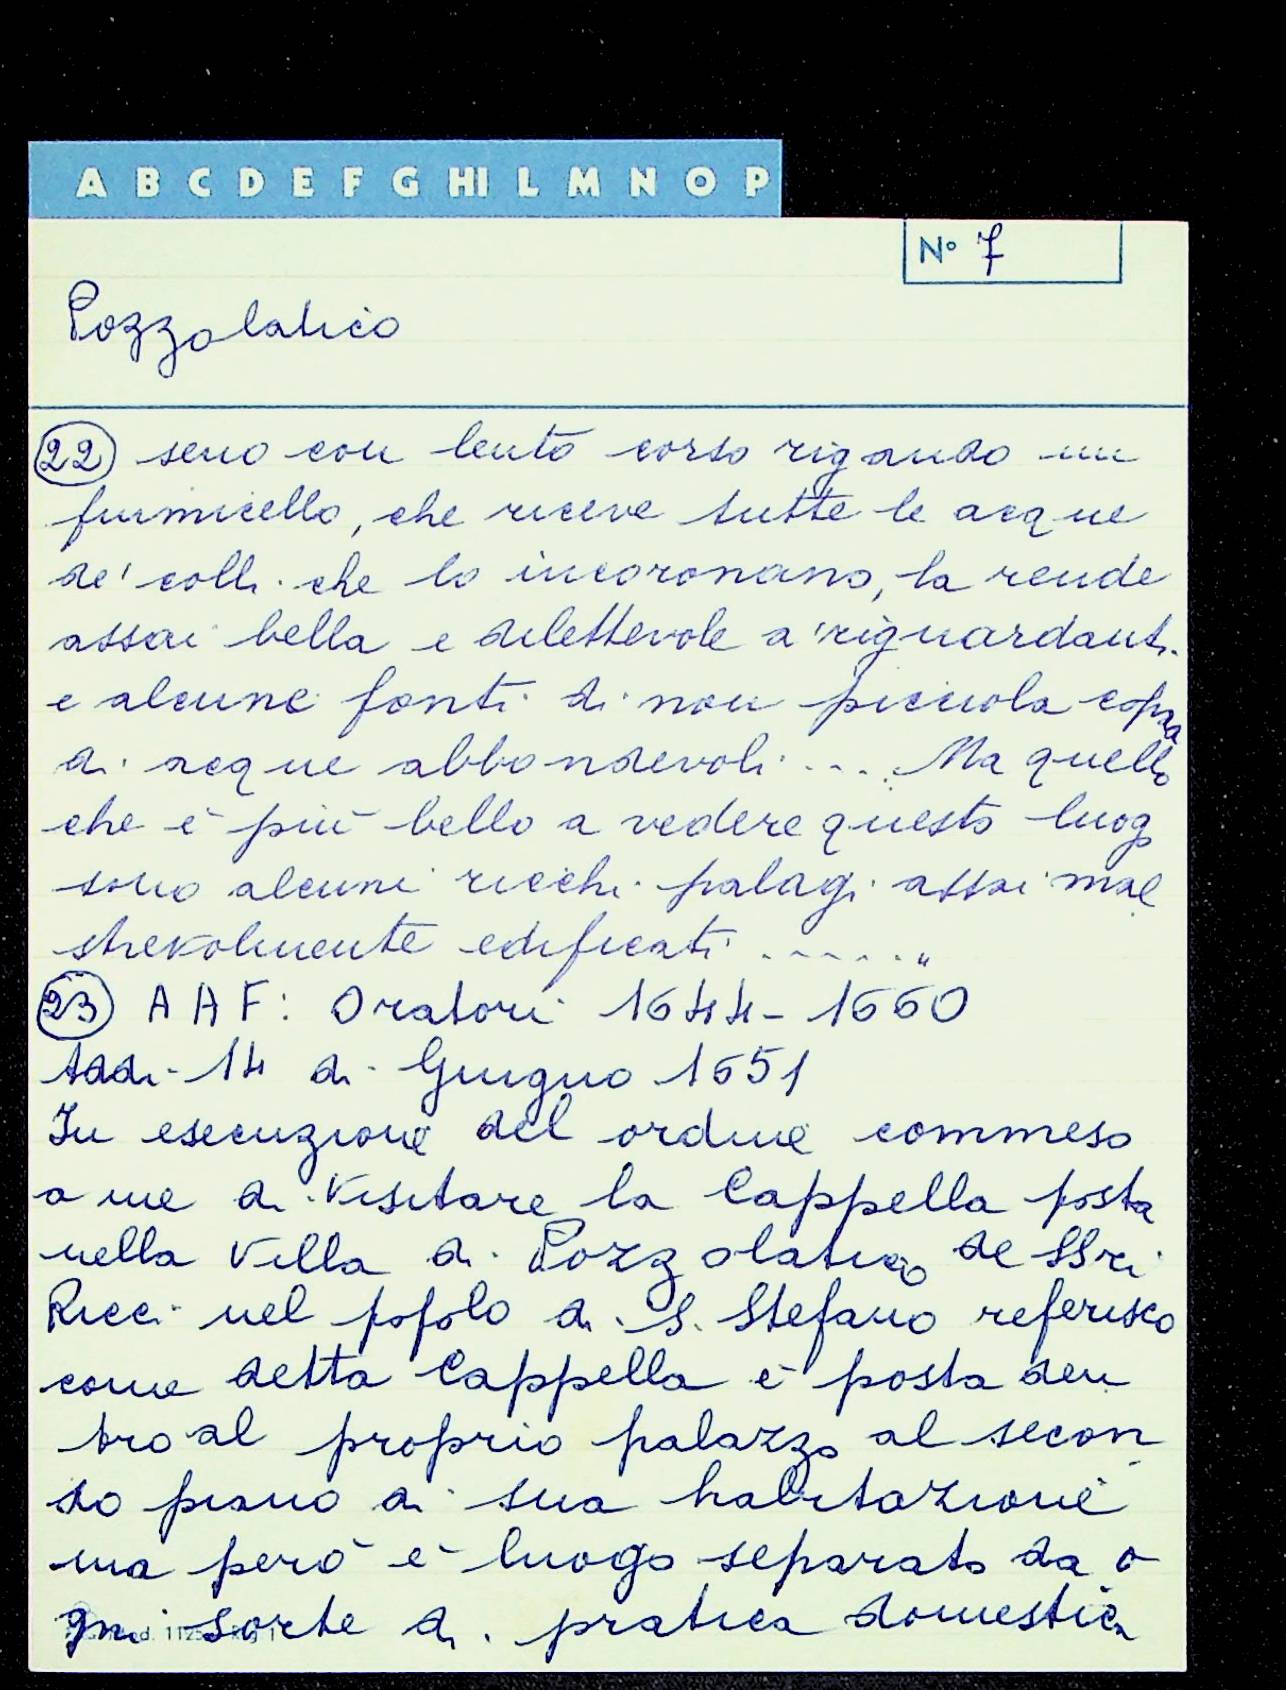 A B C D E F G HI L M N O P
N° 7
Pozzolatico
22 seno con lento corso rigando un
fiumicello, che riceve tutte le acque
de' colli che lo incoronano, la rende
assai bella e dilettevole a' riguardanti
e alcune fonti di non picciola copia
di acque abbondevoli .... Ma quello
che è più bello a vedere questo luogo
sono alcuni ricchi palagi assai mae
strevolmente edificati ......"
23 AAF: Oratori 1644-1660
Addi 14 di Giugno 1651
In esecuzione del ordine commeso
a me di Visitare la Cappella posta
nella Villa di Pozzolatico de SSri
Ricci nel popolo di S. Stefano referisco
come detta Cappella è posta den
tro al proprio palazzo al secon
do piano di sua habitazione
ma però è luogo separato da o
gni sorte di pratica domestica